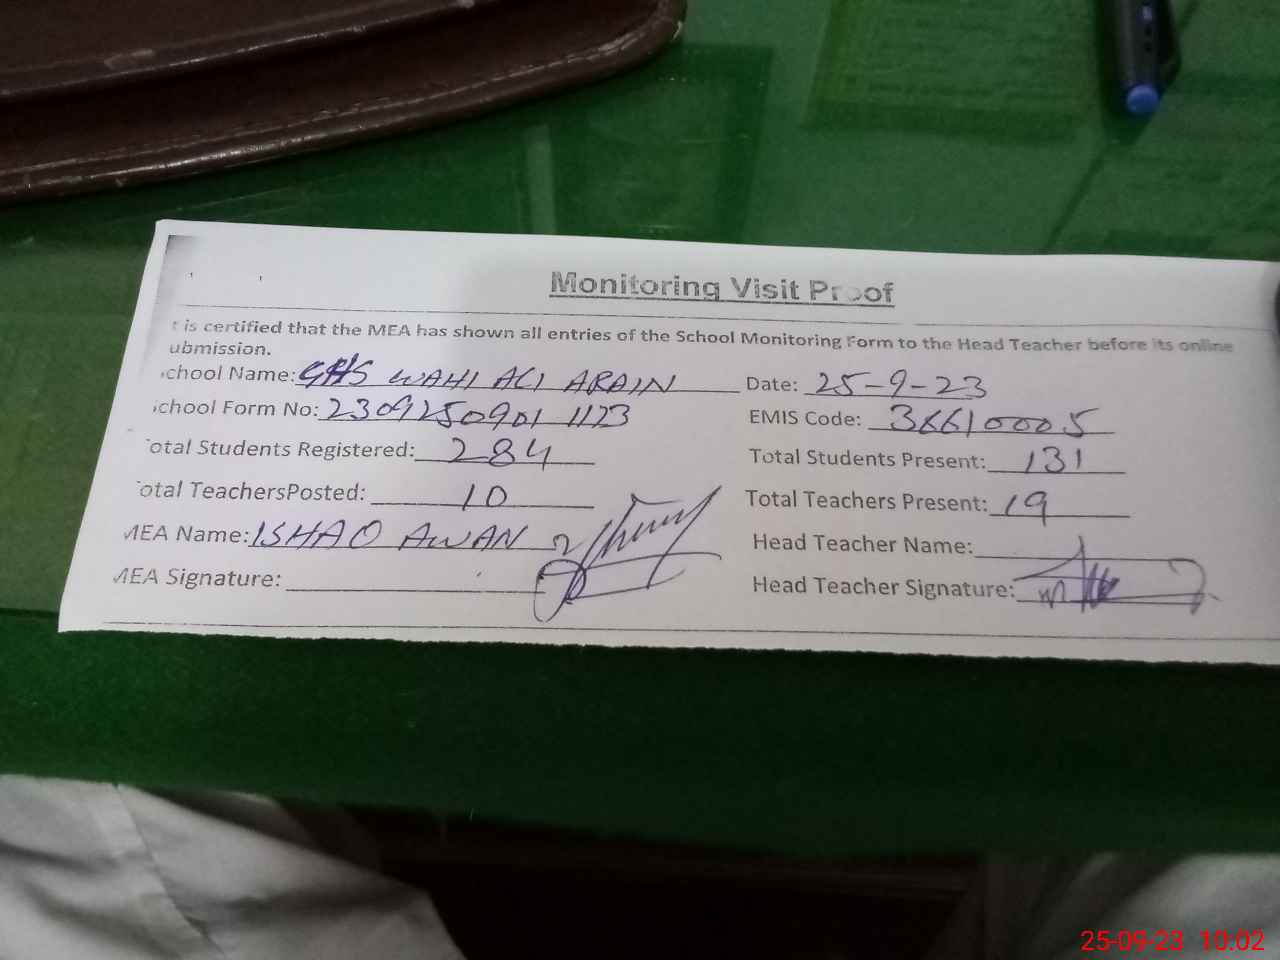 Monitoring Visit Proof
t is certified that the MEA has shown all entries of the School Monitoring Form to the Head Teacher before its online
ubmission.
chool Name: GHS WAHI ALI ARAIN Date: 25-9-23
chool Form No: 2309250901 1123 EMIS Code: 366100005
otal Students Registered: 284 Total Students Present: 131
otal TeachersPosted: 10 Total Teachers Present: 19
MEA Name: ISHAQ AWAN Head Teacher Name:
MEA Signature: Head Teacher Signature:
25-09-23 10:02